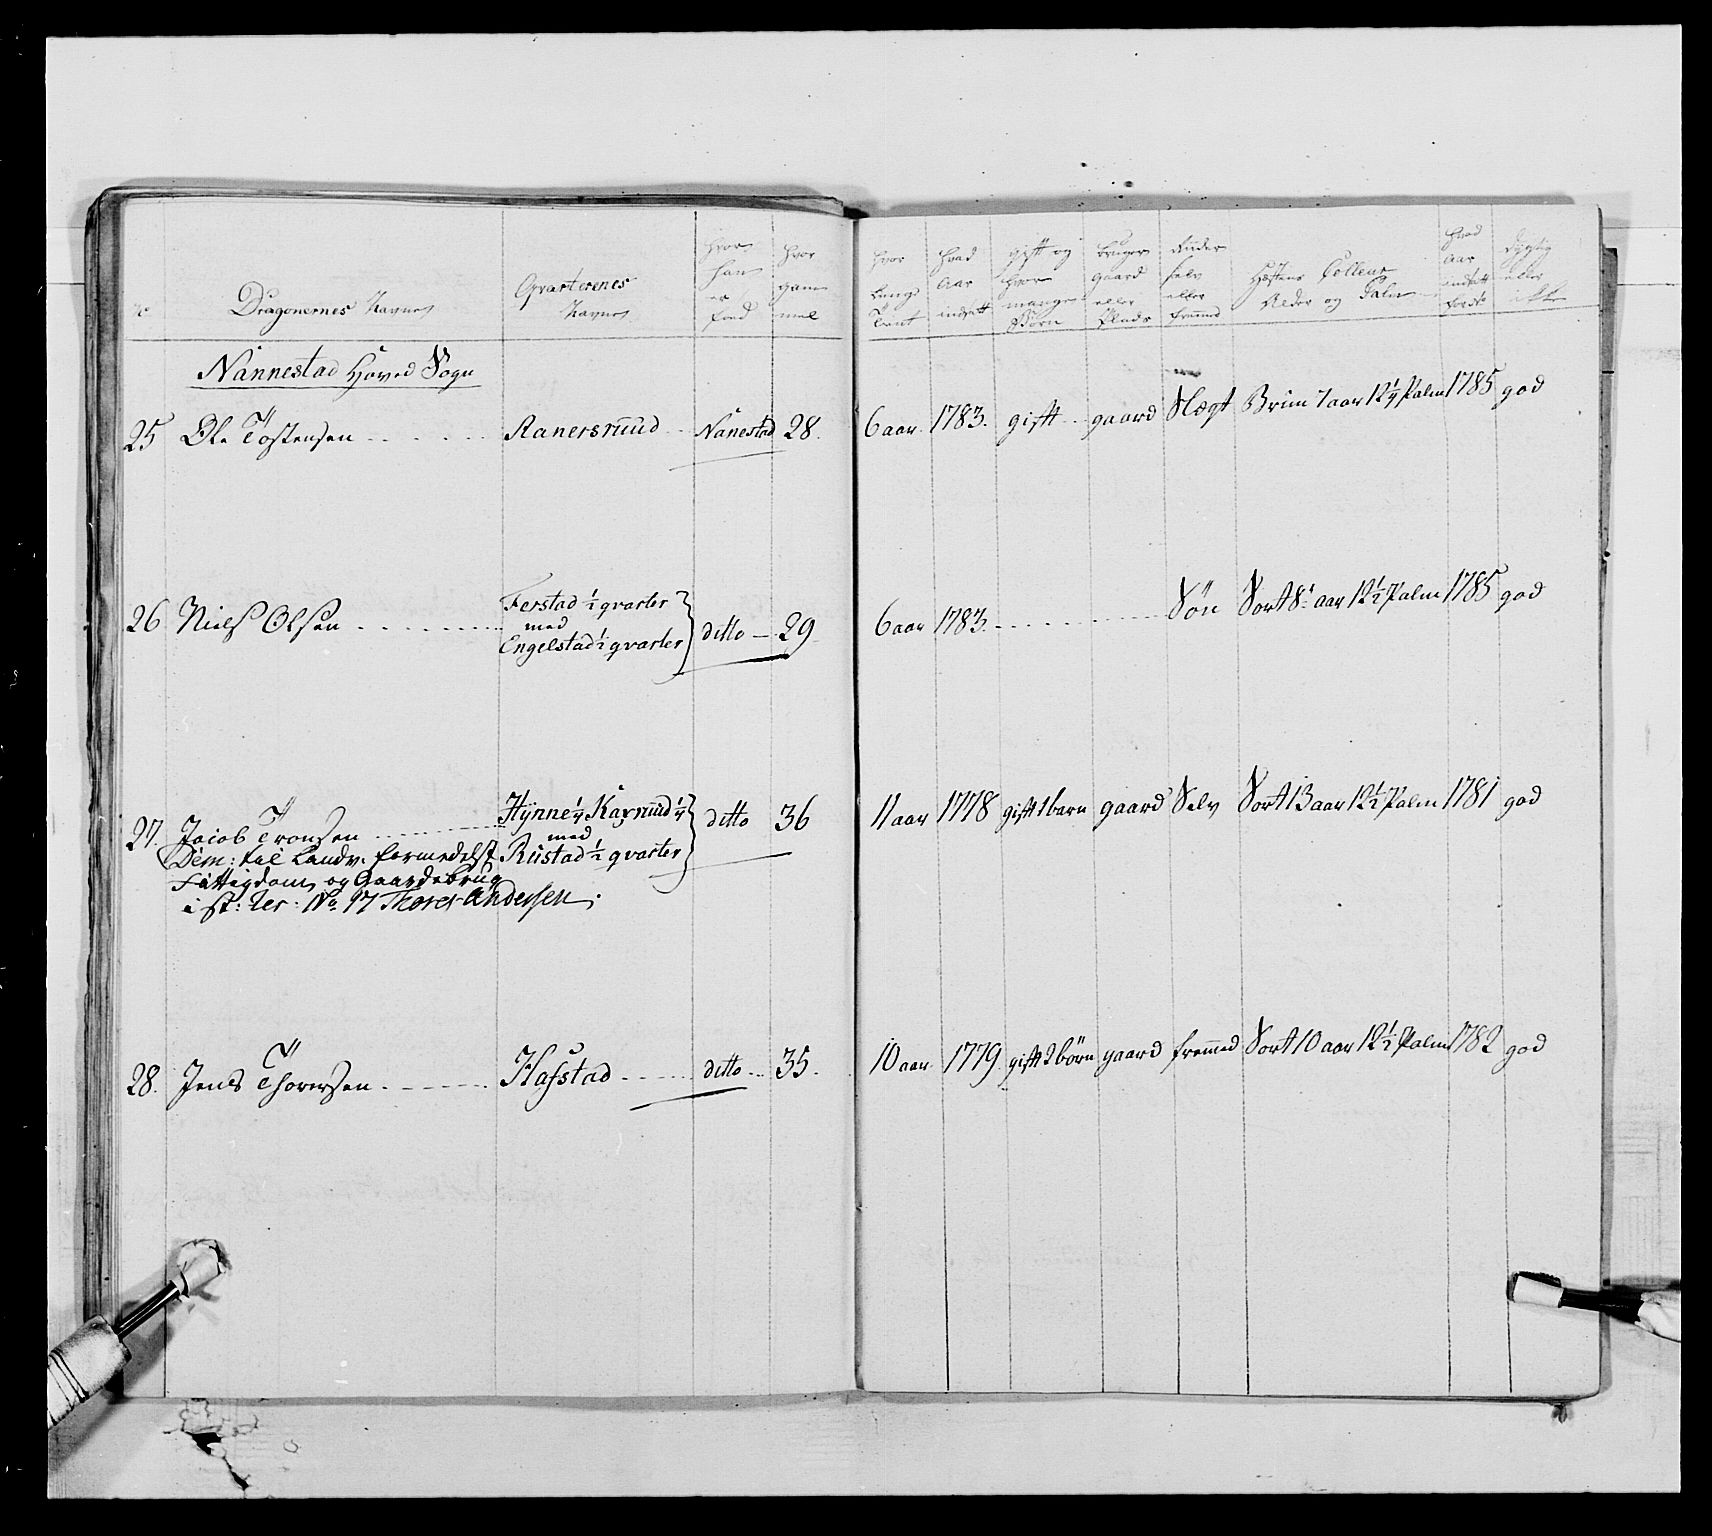 No
Dragonernes Navne
Qvarterenes
Navne
hvor
han
er
fød
hvor
gam-
mel
hvor
længe
tient
hvad
Aar
indsatt
gift og
hvor
mange
Børn
bruger
gaard
eller
Plads
Rinder
selv
eller
fremmed
Hæstens Colleur
Alder og Palm
hvad
aar
indsatt
første
dygtig
eller
ikke
Nannestad Hoved Sogn
25 Ole Tostensen Ranersruud Nanestad 28. 6 aar 1783. gift gaard Slægt Brun 7 aar 12 1/4 Palm 1785 god
26 Niels Olsen Ferstad 1/2 qvarter
med
Engelstad 1/2 qvarter ditto 29 6 aar 1783. Søn Sort 8 aar 12 1/2 Palm 1785 god
27. Jacob Tronsen Hynne 1/4 Kaxruud 1/4
med
Rustad 1/2 qvarter ditto 36 11 aar 1778 gift 1 barn gaard Selv Sort 13 aar 12 1/2 Palm 1781 god
Dem: til Landv. formedelst
Fattigdom og Gaardebrug
i st: No 17 Thorer Andersen.
28. Jens Thorersen Hafstad ditto 35. 10 aar 1779 gift 2 børn gaard fremmed Sort 10 aar 12 1/2 Palm 1782 god